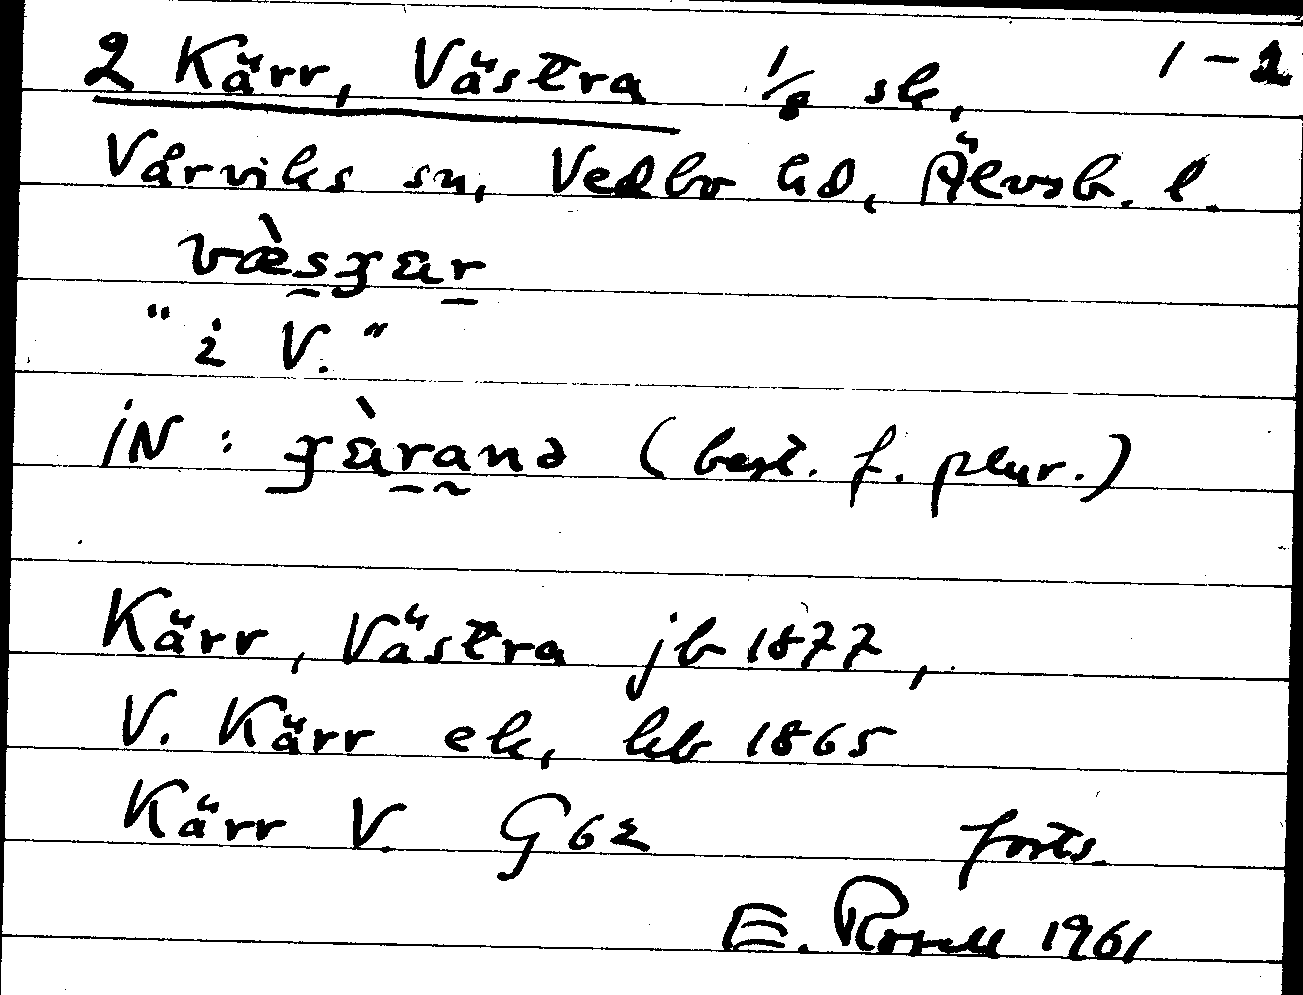 2 Kärr, Västra 1/8 sk, 1-2
Vårviks sn, Vedbo hd, Älvsb. l.
"i V."
iN: (best. f. plur.)
Kärr, Västra jb 1877,
V. Kärr ek, kb 1865
Kärr V. G 62 forts.
E. Rosell 1961